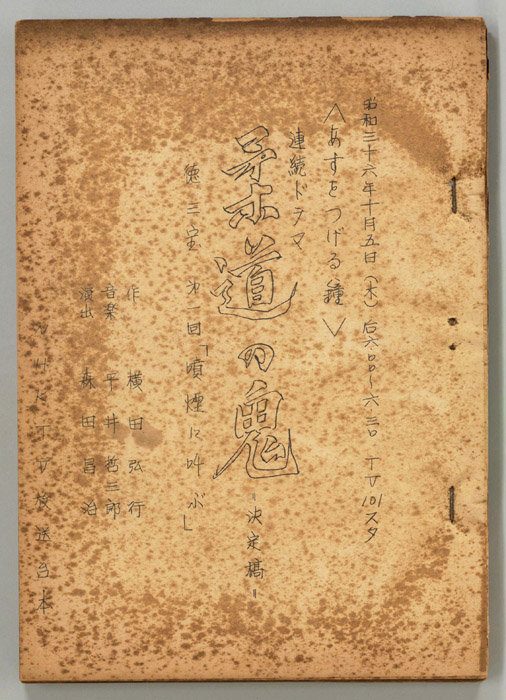 昭和三十六年十月五日(木)后六・〇〇〜六・三〇 TV101スタ
〈あすをつげる鐘〉
連続ドラマ
柔道の鬼 =決定稿=
徳三宝 第一回「噴煙に叫ぶ」
作 横田弘行
音楽 平井哲三郎
演出 森田昌治
NHKTV放送台本